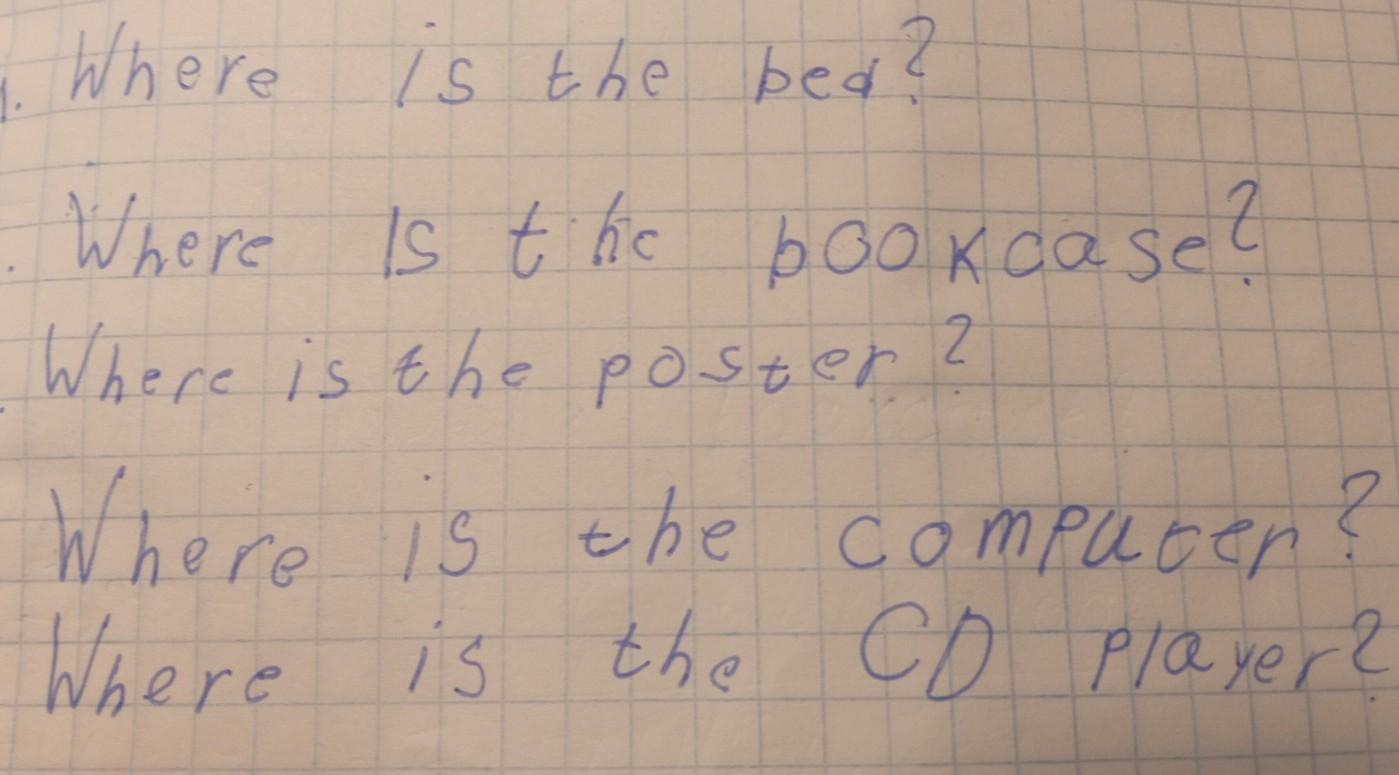 1. Where is the bed?
. Where is the bookcase?
. Where is the poster?
Where is the computer?
Where is the CD player?